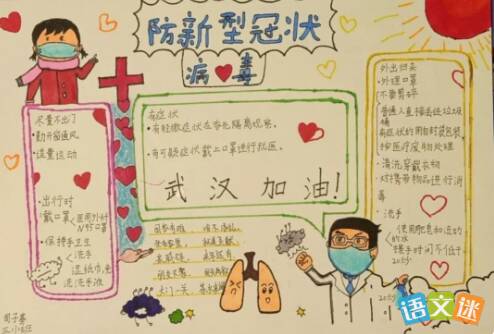 防新型冠状
病毒
尽量不出门
·勤开窗通风
·适量运动
·出行时
戴口罩
医用外科
N95口罩
·保持手卫生
洗手
湿纸巾,免
洗洗手液
有症状
·有轻微症状在家先隔离观察。
·有可疑症状戴上口罩进行就医。
武汉加油!
外出归来
·外理口罩
不要剪碎
普通人直接丢进垃圾桶
有症状的用自封袋包装
按医疗废物处理
·清洗穿戴衣物
·对携带物品进行消毒
·洗手
使用肥皂和流动的水
搓手时间不低于20秒
语文迷